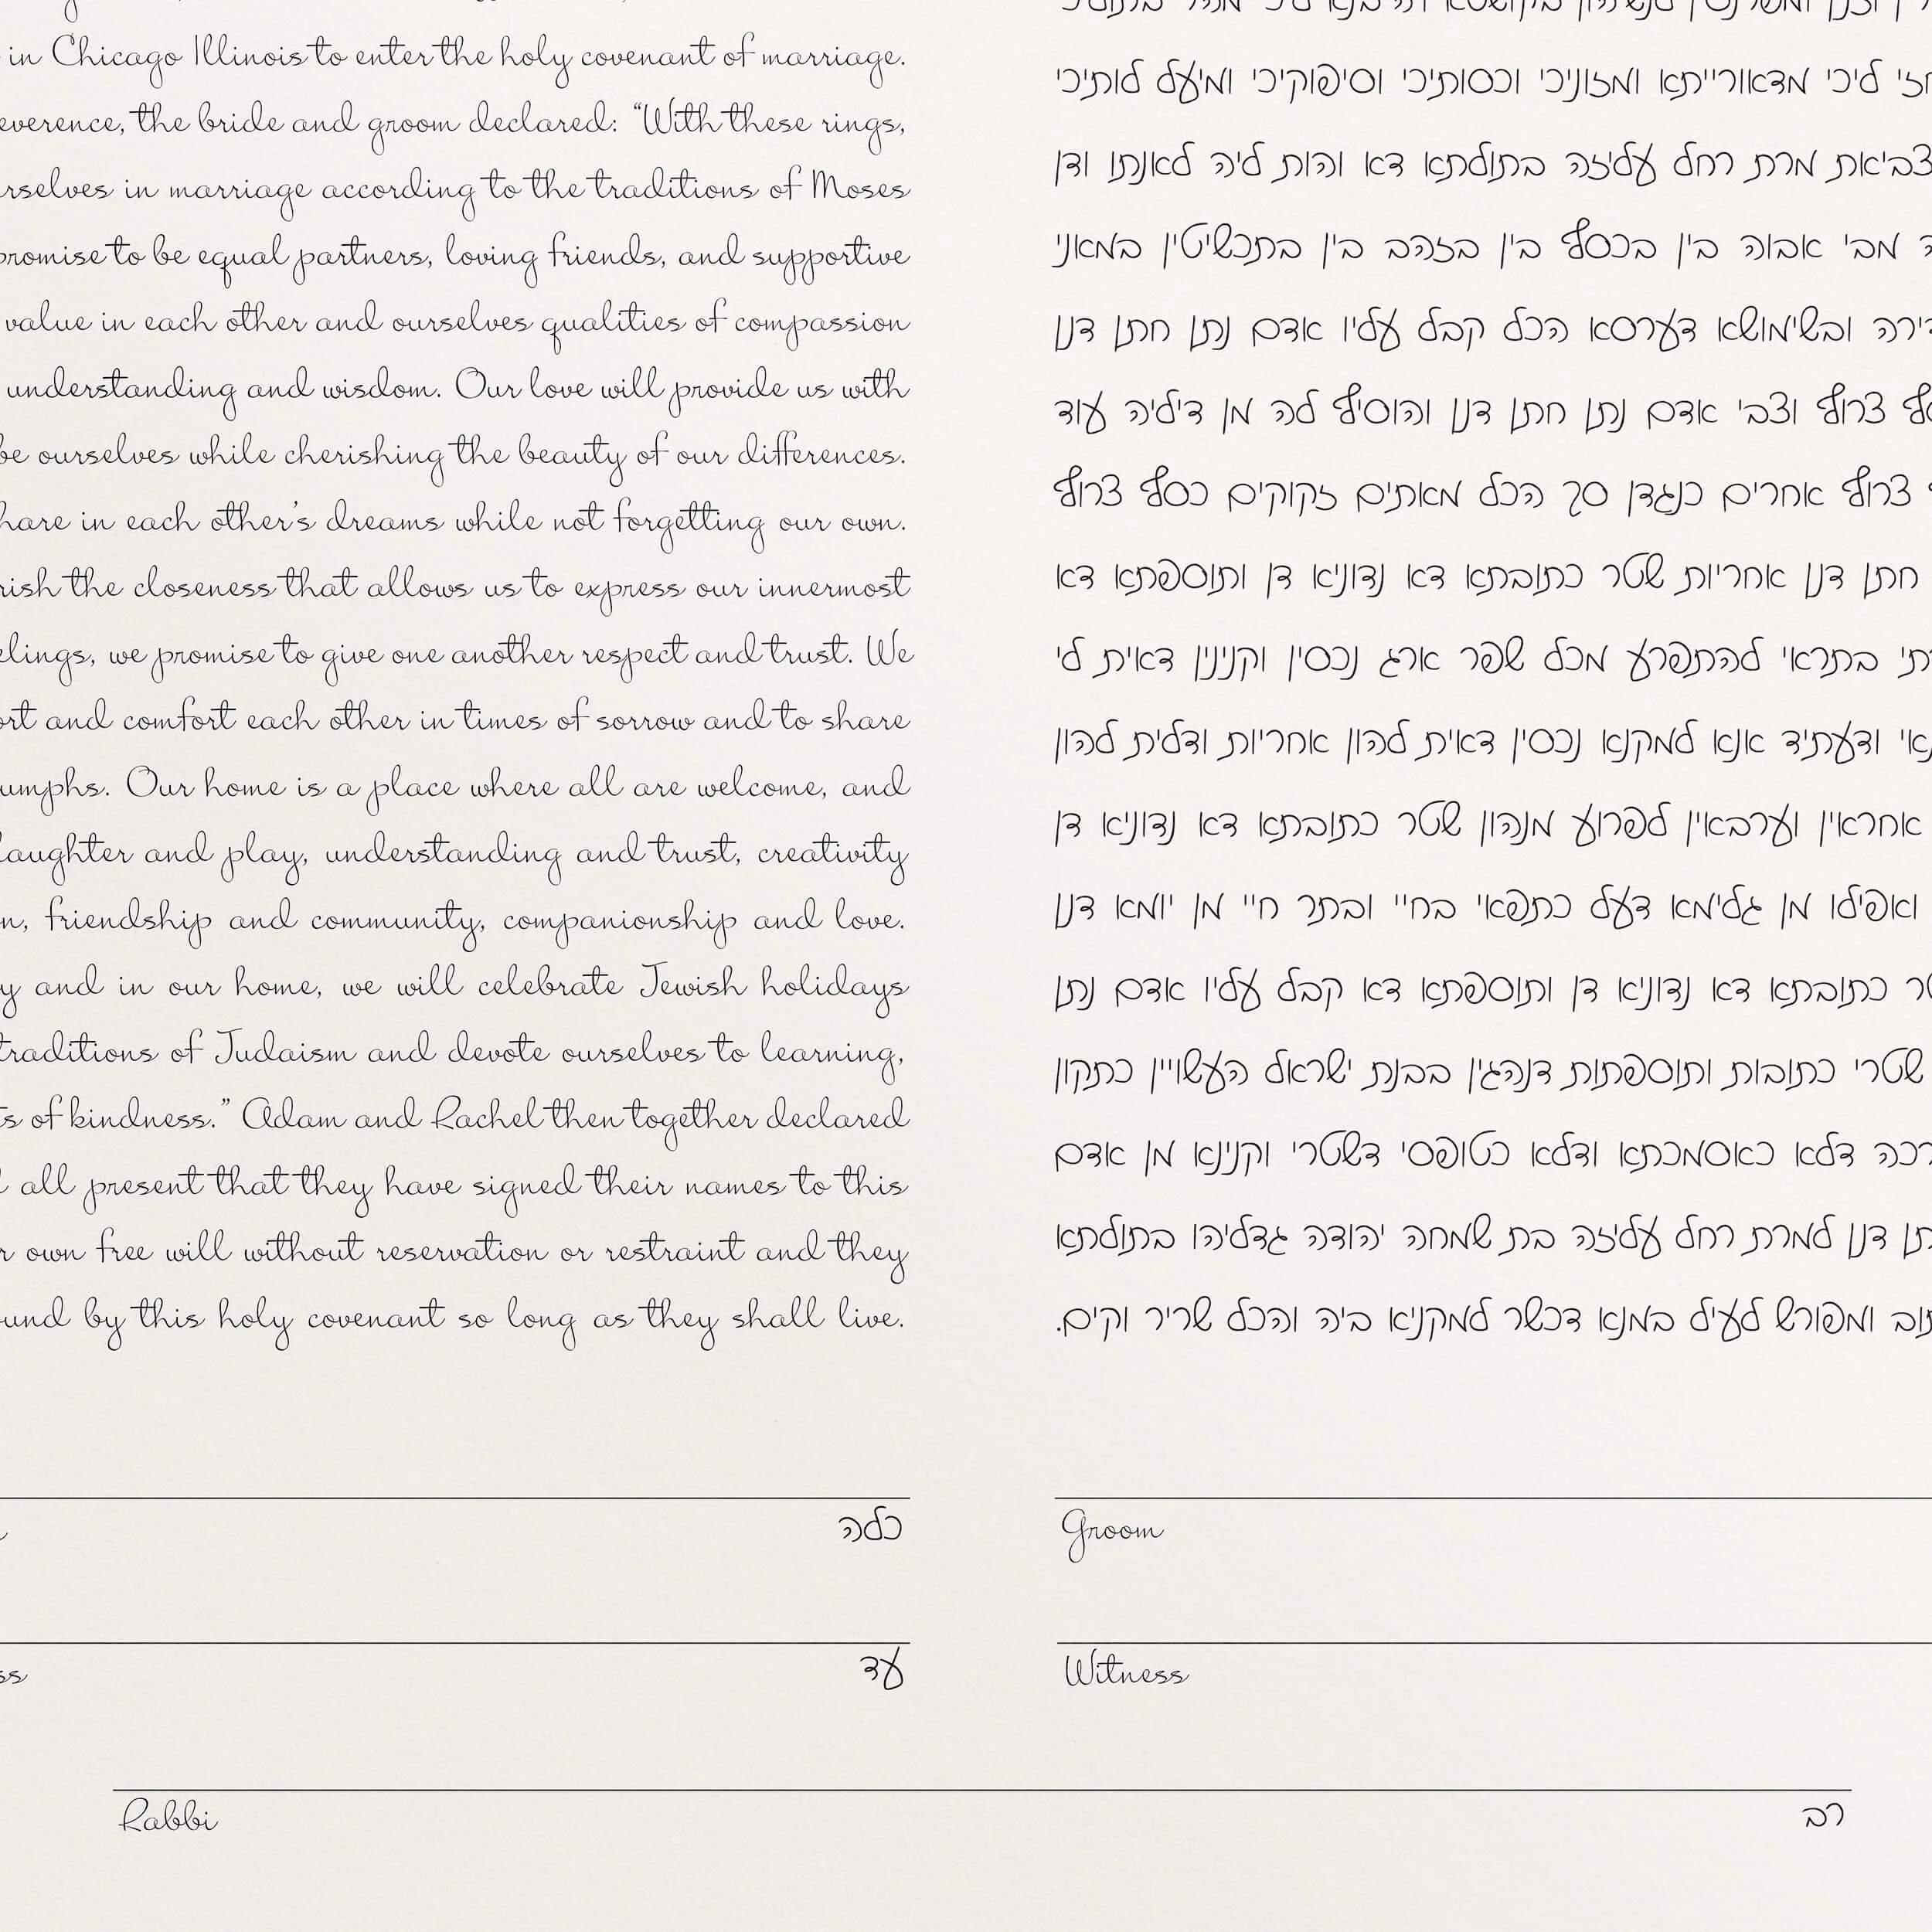 in Chicago Illinois to enter the holy covenant of marriage.
everence, the bride and groom declared: “With these rings,
rselves in marriage according to the traditions of Moses
promise to be equal partners, loving friends, and supportive
value in each other and ourselves qualities of compassion
understanding and wisdom. Our love will provide us with
be ourselves while cherishing the beauty of our differences.
hare in each other’s dreams while not forgetting our own.
rish the closeness that allows us to express our innermost
elings, we promise to give one another respect and trust. We
ort and comfort each other in times of sorrow and to share
umphs. Our home is a place where all are welcome, and
laughter and play, understanding and trust, creativity
n, friendship and community, companionship and love.
y and in our home, we will celebrate Jewish holidays
traditions of Judaism and devote ourselves to learning,
s of kindness.” Adam and Rachel then together declared
all present that they have signed their names to this
r own free will without reservation or restraint and they
und by this holy covenant so long as they shall live.
חזי ליכי מדאורייתא ומזוניכי וכסותיכי וסיפוקיכי ומיעל לותיכי
צביאת מרת רחל עליזה בתולתא דא והות ליה לאנתו ודן
מבי אבוה בין בכסף בין בזהב בין בתכשיטין במאני
דירה ובשימושא דערסא הכל קבל עליו אדם נתן חתן דנן
צרוף וצבי אדם נתן חתן דנן והוסיף לה מן דיליה עוד
צרוף אחרים כנגדן סך הכל מאתים זקוקים כסף צרוף
חתן דנן אחריות שטר כתובתא דא נדוניא דן ותוספתא דא
תי בתראי להתפרע מכל שפר ארג נכסין וקנינין דאית לי
נאי ודעתיד אנא למקנא נכסין דאית להון אחריות ודלית להון
אחראין וערבאין לפרוע מנהון שטר כתובתא דא נדוניא דן
ואפילו מן גלימא דעל כתפאי בחיי ובתר חיי מן יומא דנן
טר כתובתא דא נדוניא דן ותוספתא דא קבל עליו אדם נתן
שטרי כתובות ותוספתות דנהגין בבנת ישראל העשויין כתקון
רכה דלא כאסמכתא ודלא כטופסי דשטרי וקנינא מן אדם
תן דנן למרת רחל עליזה בת שמחה יהודה גדליהו בתולתא
תוב ומפורש לעיל במנא דכשר למקניא ביה והכל שריר וקים.
כלה
Groom
ss עד
Witness
Rabbi רב